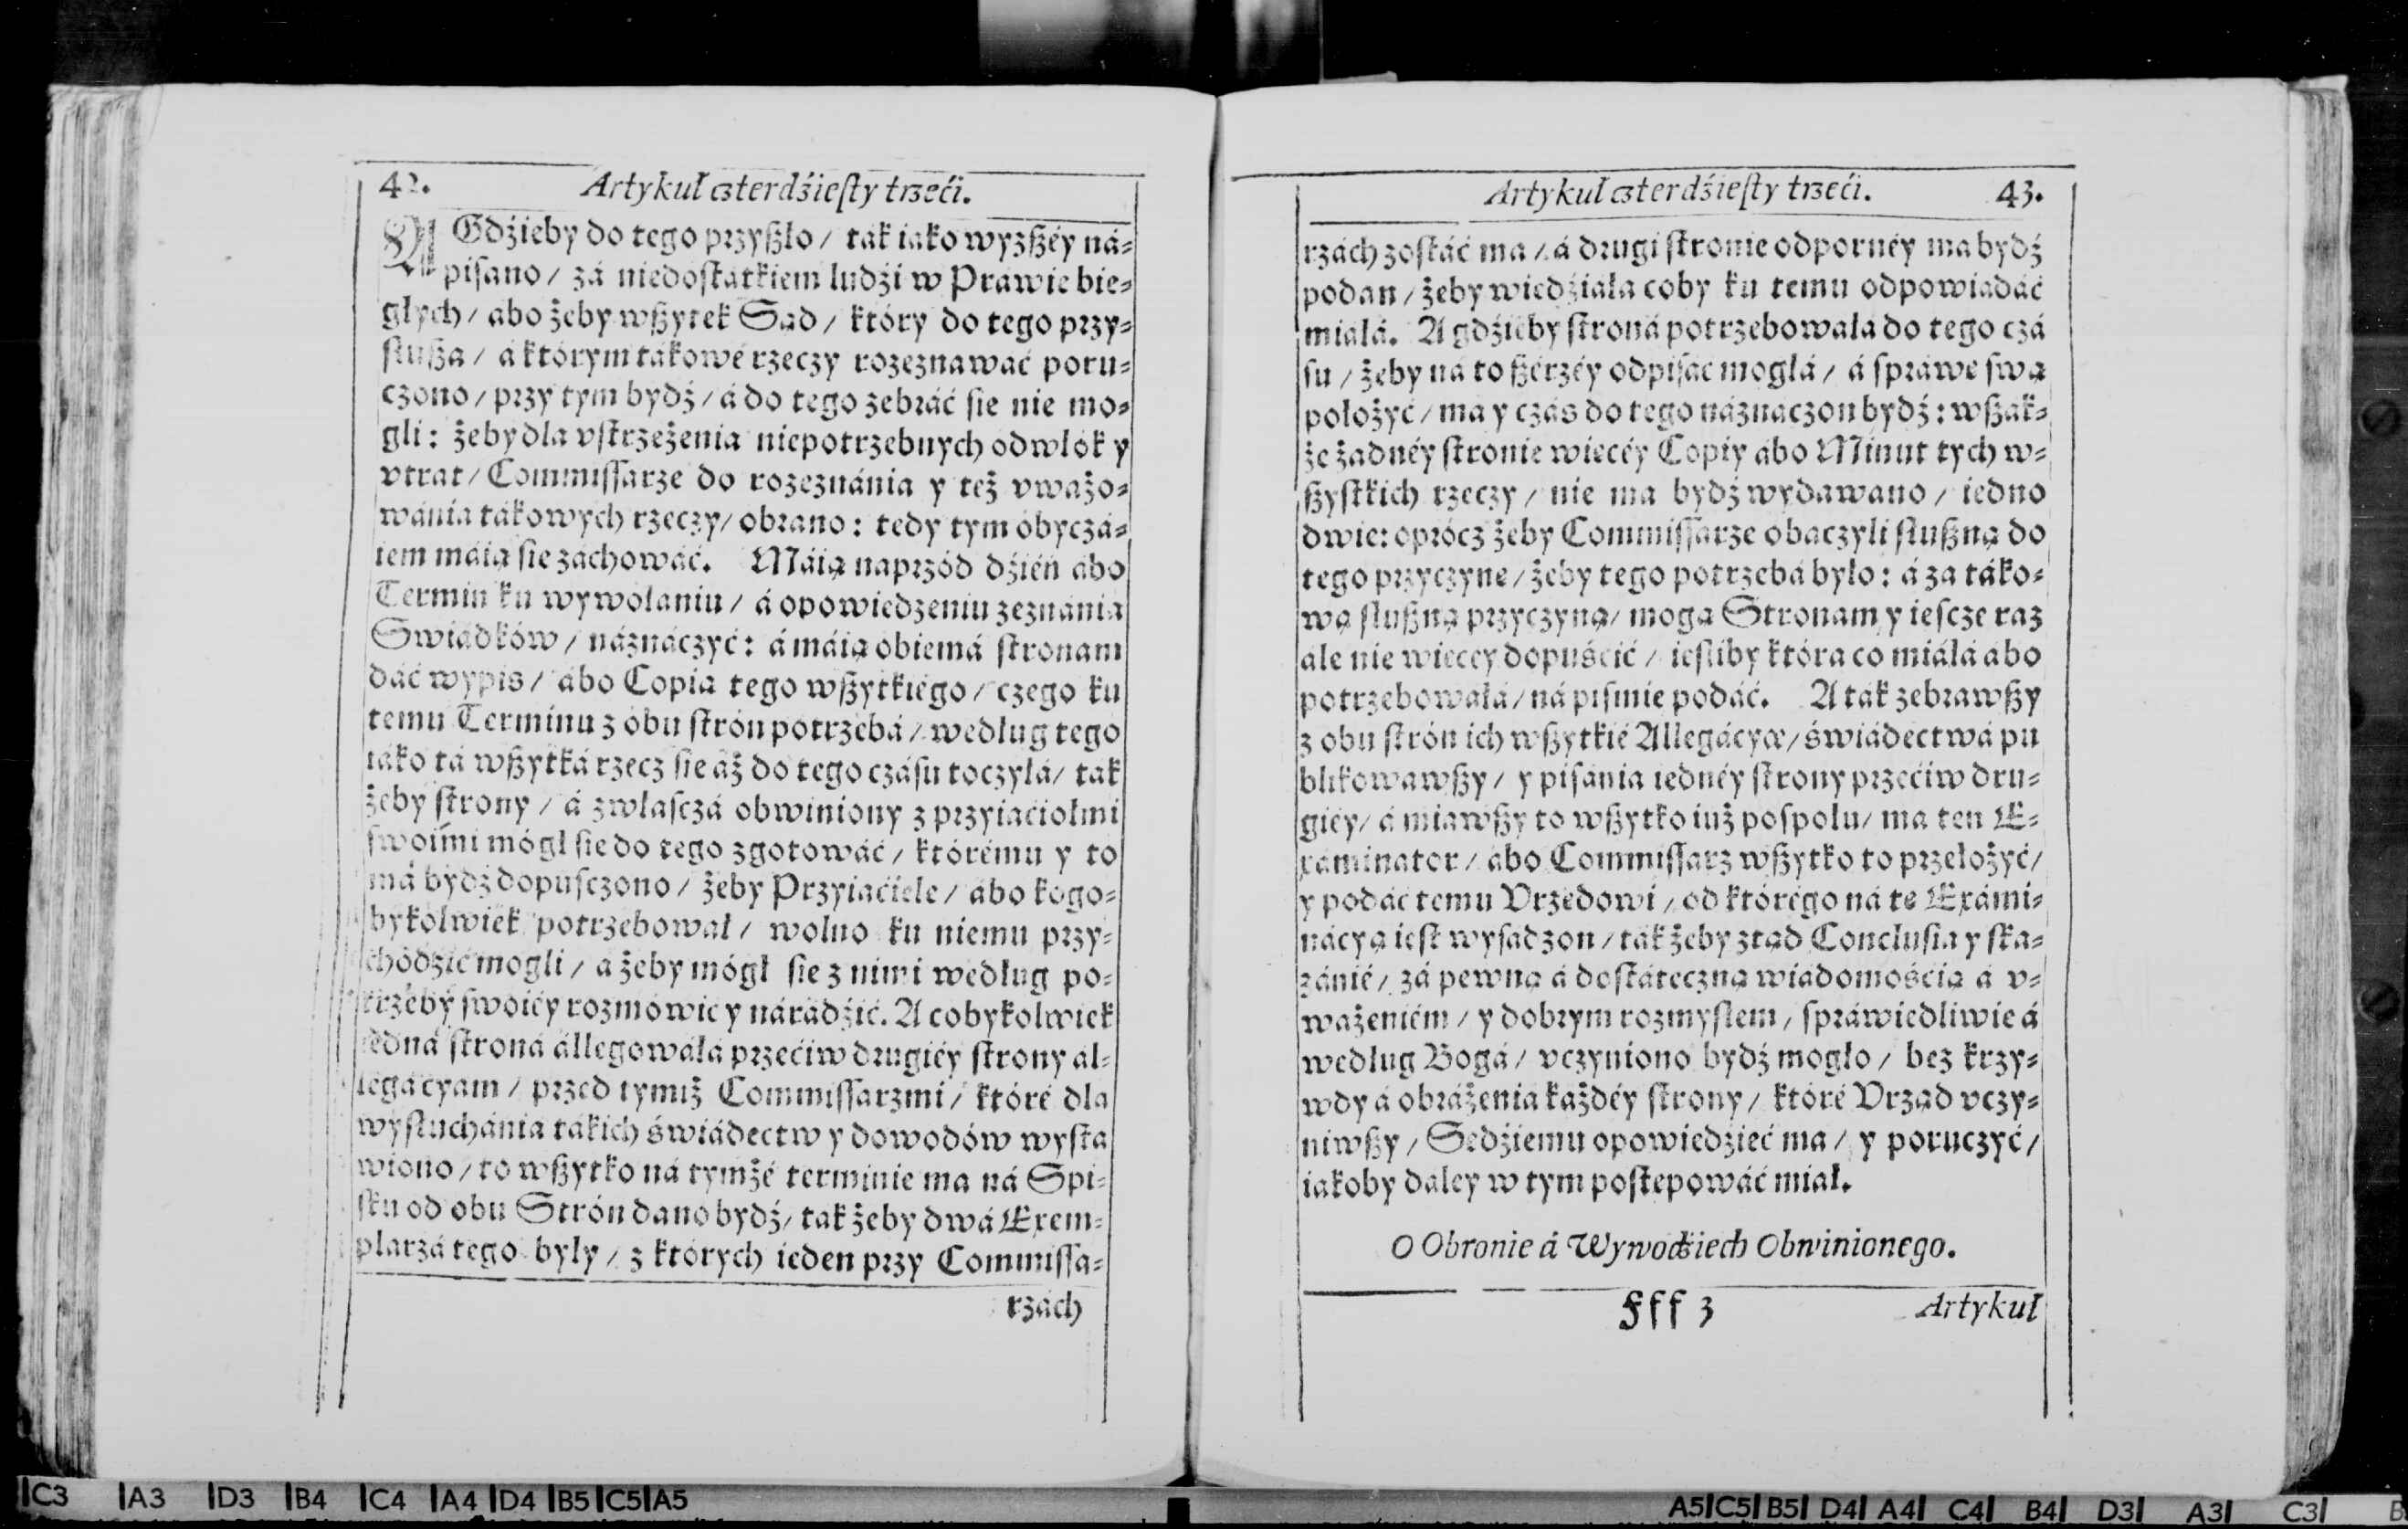 42. Artykuł czterdźieſty trzeći.
A Gdźieby do tego przyßło / ták iáko wyzßéy ná-
piſano / zá niedoſtátkiem ludźi w Práwie bie-
głych / ábo żeby wßytek Sąd / który do tego przy-
ſłußa / á którym tákowé rzeczy rozeznawáć poru-
czono / przy tym bydź / á do tego zebráć ſie nie mo-
gli: żeby dla vſtrzeżenia niepotrzebnych odwłok y
vtrat / Commiſſarze do rozeznánia y też vważo-
wánia tákowych rzeczy / obrano: tedy tym obyczá-
iem máią ſie záchowáć. Máią naprzód dźień ábo
Termin ku wywołaniu / á opowiedzeniu zeznánia
Swiádków / náznáczyć: á máią obiemá ſtronam
dáć wypis / ábo Copią tego wßytkiégo / czego ku
temu Terminu z obu ſtrón potrzebá / według tego
iáko tá wßytká rzecz ſie áż do tego czáſu toczyłá / ták
żeby ſtrony / á zwłaſczá obwiniony z przyiaćiołmi
ſwoimi mógł ſie do tego zgotowáć / którému y to
má bydź dopuſczono / żeby Przyiaćiele / ábo kogo-
bykolwiek potrzebował / wolno ku niemu przy-
chodźić mogli / á żeby mógł ſie z nimi według po-
trzeby ſwoiéy rozmówić y nárádźić. A cobykolwiek
iedná ſtroná állegowáłá przećiw drugiéy ſtrony ál-
legácyam / przed tymiż Commiſſarzmi / któré dla
wyſłuchánia tákich świádectw y dowodów wyſtá
wiono / to wßytko ná tymże terminie ma ná Spi-
ſku od obu Strón dano bydź / ták żeby dwá Exem-
plarzá tego były / z których ieden przy Commiſſa-
rzách
Artykuł czterdźieſty trzeći. 43.
rzách zoſtáć ma / á drugi ſtronie odpornéy ma bydź
podan / żeby wiedźiałá coby ku temu odpowiádáć
miáłá. A gdźieby ſtroná potrzebowáłá do tego czá
ſu / żeby ná to ßérzéy odpiſáć mogłá / á ſpráwe ſwą
położyć / ma y czás do tego náznáczon bydź: wßák-
że żadnéy ſtronie wiecéy Copiy ábo Minut tych w-
ßyſtkich rzeczy / nie ma bydź wydawano / iedno
dwie: oprócz żeby Commiſſarze obaczyli ſłußną do
tego przyczyne / żeby tego potrzebá było: á za táko-
wą ſłußną przyczyną / mogą Stronam y ieſcze raz
ále nie wiecey dopuśćić / ieſliby która co miáłá ábo
potrzebowáłá / ná piſmie podáć. A ták zebrawßy
z obu ſtrón ich wßytkié Allegácyæ / świádectwá pu
blikowawßy / y piſánia iednéy ſtrony przećiw dru-
giéy / á miawßy to wßytko iuż poſpołu / ma ten E-
xáminator / ábo Commiſſarz wßytko to przełożyć /
y podáć temu Vrzedowi / od którégo ná te Exámi-
nácyą ieſt wyſadzon / ták żeby ztąd Concluſia y ſka-
zánié / zá pewną á doſtáteczną wiadomośćią á v-
ważeniém / y dobrym rozmyſłem / ſpráwiedliwie á
według Bogá / vczyniono bydź mogło / bez krzy-
wdy á obráżenia każdéy ſtrony / któré Vrząd vczy-
niwßy / Sedźiemu opowiedźieć ma / y poruczyć /
iakoby daley w tym poſtepowáć miał.
O Obronie á Wywodźiech Obwinionego.
Fff 3 Artykuł
C3 A3 D3 B4 C4 A4 D4 B5 C5 A5
A5 C5 B5 D4 A4 C4 B4 D3 A3 C3 B